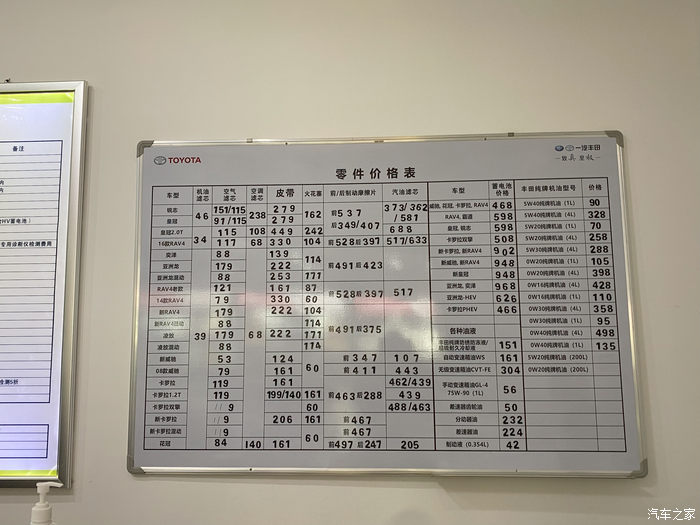 备注
TOYOTA
一汽丰田
零件价格表
车型 机油滤芯 空气滤芯 空调滤芯 皮带 火花塞 前/后制动摩擦片 汽油滤芯 车型 蓄电池价格 丰田纯牌机油型号 价格
锐志 46 151/115 238 279 162 前537 373/362/581 威驰, 花冠, 卡罗拉, RAV4 468 5W40纯牌机油 (1L) 90
皇冠 91/115 279 后349/407 RAV4, 霸道 598 5W40纯牌机油 (4L) 328
皇冠2.0T 34 115 108 449 242 688 皇冠, 锐志 598 5W20纯牌机油 (1L) 70
14款RAV4 117 68 330 104 前528后397 517/633 卡罗拉双擎 508 5W20纯牌机油 (4L) 258
奕泽 39 88 68 139 114 前491后423 新卡罗拉, 新RAV4 902 5W30纯牌机油 (4L) 288
亚洲龙 179 222 新威驰, 新RAV4 948 0W20纯牌机油 (1L) 105
亚洲龙混动 88 253 171 新皇冠 948 0W20纯牌机油 (4L) 398
RAV4老款 121 161 87 前528后397 517 亚洲龙, 奕泽 968 0W16纯牌机油 (4L) 428
14款RAV4 79 330 60 亚洲龙-HEV 626 0W16纯牌机油 (1L) 110
新RAV4 179 222 104 前491后375 卡罗拉PHEV 466 0W30纯牌机油 (4L) 358
新RAV4混动 88 114 0W30纯牌机油 (1L) 95
凌放 179 222 171 各种油液 0W40纯牌机油 (4L) 498
凌放混动 88 114 151 0W40纯牌机油 (1L) 135
新威驰 53 124 60 前347 107 自动变速箱油WS 161 5W20纯牌机油 (200L)
06款威驰 79 161 前411 443 无级变速箱油CVT-FE 304 0W20纯牌机油 (200L)
卡罗拉 119 161 前463后288 462/439 手动变速箱油GL-4 75W-90 (1L) 56
卡罗拉1.2T 119 199/140 161 439
卡罗拉双擎 119 60 488/463 差速器齿轮油 50
新卡罗拉 119 206 161 前467 分动器油 232
新卡罗拉混动 119 60 前467 差速器油 224
花冠 84 140 161 前497后247 205 制动液 (0.354L) 42
汽车之家